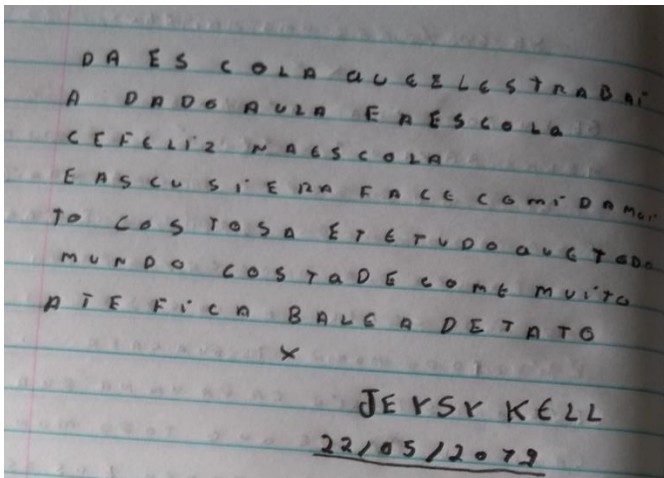 DA ES COLA QUE ELES TRABAI
A DADO AULA E A ESCOLA
CE FELIZ NA ESCOLA
E AS CUSIERA FACE COMIDA MUI
TO COSTOSA E TE TUDO QUE TODO
MUNDO COSTA DE COME MUITO
ATE FICA BALEADE TATO
X
JEYSY KELL
22/05/2019